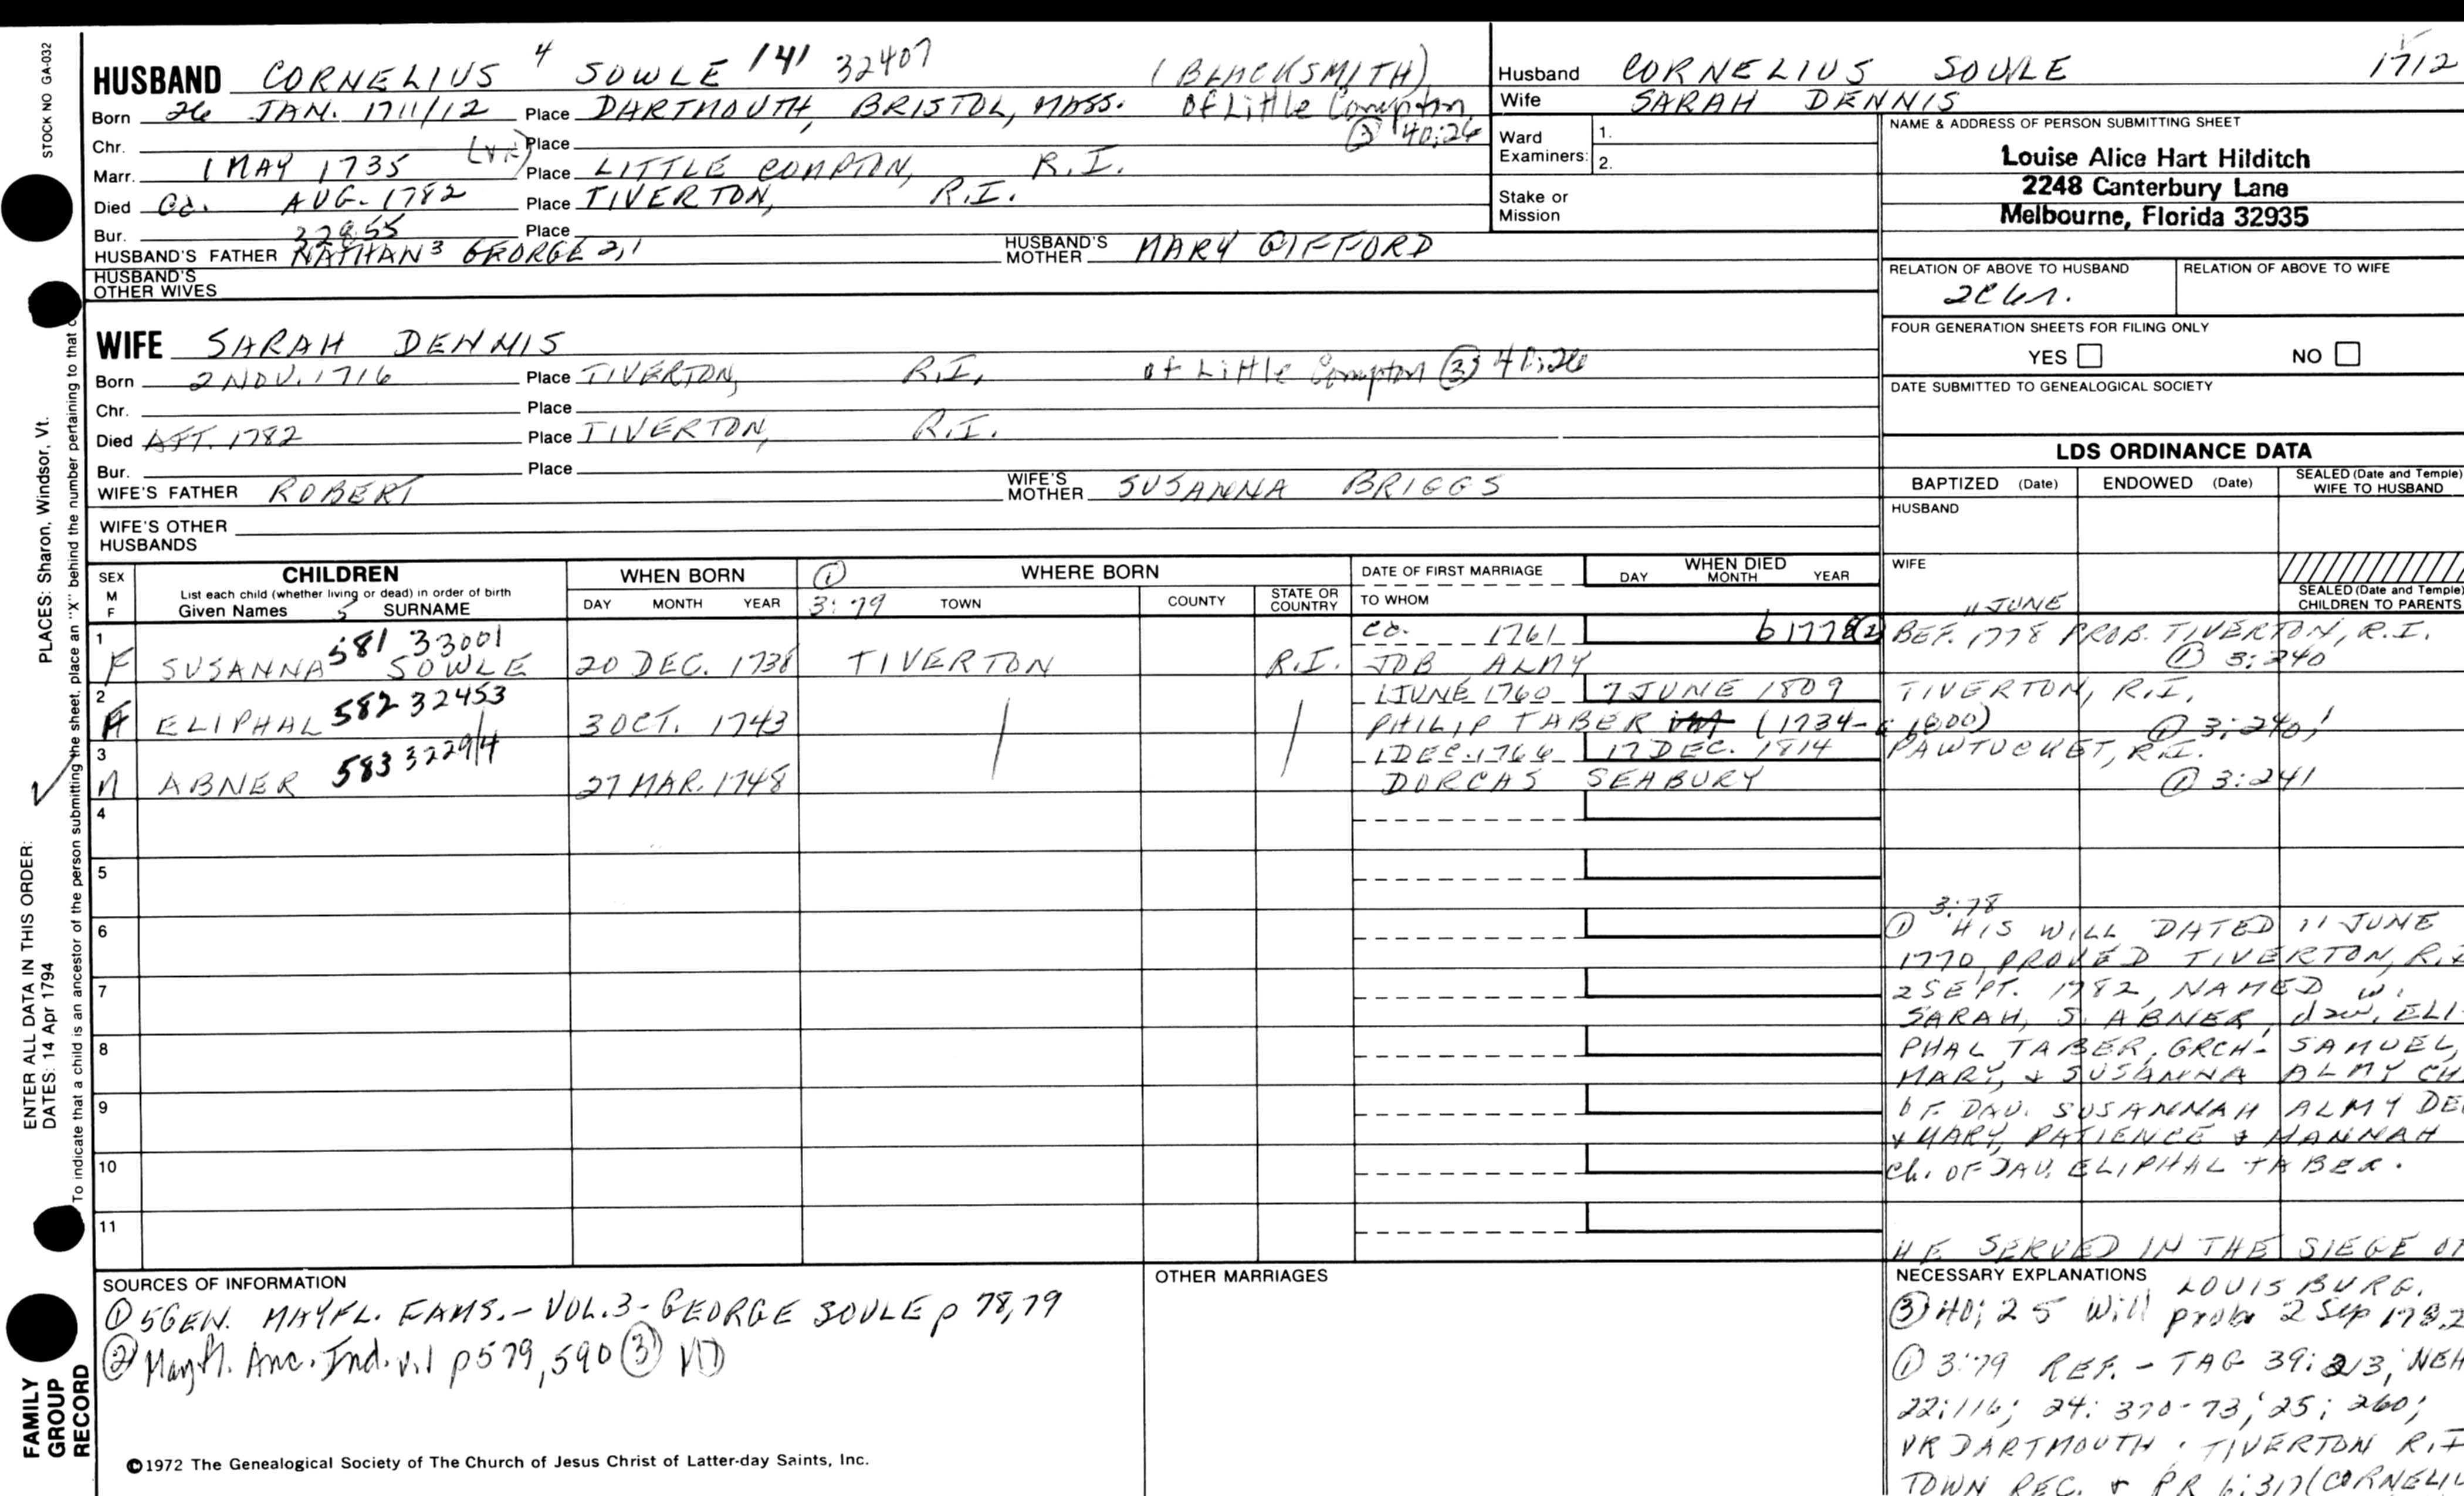 STOCK NO GA-032
HUSBAND CORNELIUS 4 SOWLE 141 32407 (BLACKSMITH)
Born 26 JAN. 1711/12 Place DARTMOUTH, BRISTOL, MASS. Of Little Compton
Chr. Place ③ 40:26
Marr. 1 MAY 1735 (VR) Place LITTLE COMPTON, R.I.
Died Ca. AUG. 1782 Place TIVERTON, R.I.
Bur. Place
HUSBAND'S FATHER NATHAN 3 GEORGE 2,1 HUSBAND'S MOTHER MARY GIFFORD
HUSBAND'S OTHER WIVES
WIFE SARAH DENNIS
Born 2 NOV. 1716 Place TIVERTON, R.I. of Little Compton ③ 40:26
Chr. Place
Died AFT. 1782 Place TIVERTON, R.I.
Bur. Place
WIFE'S FATHER ROBERT WIFE'S MOTHER SUSANNA BRIGGS
WIFE'S OTHER HUSBANDS
Husband CORNELIUS SOULE 1712
Wife SARAH DENNIS
Ward Examiners: 1.
2.
Stake or Mission
NAME & ADDRESS OF PERSON SUBMITTING SHEET
Louise Alice Hart Hilditch
2248 Canterbury Lane
Melbourne, Florida 32935
RELATION OF ABOVE TO HUSBAND RELATION OF ABOVE TO WIFE
FOUR GENERATION SHEETS FOR FILING ONLY
YES NO
DATE SUBMITTED TO GENEALOGICAL SOCIETY
LDS ORDINANCE DATA
BAPTIZED (Date) ENDOWED (Date) SEALED (Date and Temple) WIFE TO HUSBAND
HUSBAND
WIFE
SEALED (Date and Temple) CHILDREN TO PARENTS
SEX M F CHILDREN WHEN BORN ① WHERE BORN DATE OF FIRST MARRIAGE WHEN DIED
List each child (whether living or dead) in order of birth
Given Names 5 SURNAME DAY MONTH YEAR 3:79 TOWN COUNTY STATE OR COUNTRY TO WHOM DAY MONTH YEAR
11 JUNE
1 581 33001 ca. 1761 b 1778 ② BEF. 1778 PROB. TIVERTON, R.I.
F SUSANNA SOWLE 20 DEC. 1738 TIVERTON R.I. JOB ALMY ① 3:240
2 582 32453 1 JUNE 1760 7 JUNE 1809 TIVERTON, R.I.
F ELIPHAL 3 OCT. 1743 PHILIP TABER (1734- ① 3:240
3 583 1 DEC. 1766 17 DEC. 1814 PAWTUCKET, R.I.
M ABNER 27 MAR. 1748 DORCAS SEABURY ① 3:241
4
5
6
7
8
9
10
11
3:78
① HIS WILL DATED 11 JUNE
1770, PROVED TIVERTON, R.I.
2 SEPT. 1782, NAMED w.
SARAH, S. ABNER, dau. ELI-
PHAL TABER, GRCH- SAMUEL,
MARY, & SUSANNA ALMY CH
OF DAU. SUSANNAH ALMY DE
& MARY, PATIENCE & HANNAH
Ch. OF DAU. ELIPHAL TABER.
HE SERVED IN THE SIEGE OF
LOUISBURG.
NECESSARY EXPLANATIONS
③ 40:25 Will prob 2 Sep 1782
① 3:79 REF. - TAG 39:213, NEH
22:116; 24: 370-73; 25: 260;
VR DARTMOUTH. TIVERTON R.I.
TOWN REC. & PR 6:317 (CORNELIU
SOURCES OF INFORMATION
① 5GEN. MAYFL. FAMS. - VOL.3 - GEORGE SOULE p 78,79
② Mayfl. Anc. Ind. v.1 p579,590 ③ VD
OTHER MARRIAGES
©1972 The Genealogical Society of The Church of Jesus Christ of Latter-day Saints, Inc.
FAMILY GROUP RECORD
ENTER ALL DATA IN THIS ORDER:
DATES: 14 Apr 1794
PLACES: Sharon, Windsor, Vt.
To indicate that a child is an ancestor of the person submitting the sheet, place an "X" behind the number pertaining to that c